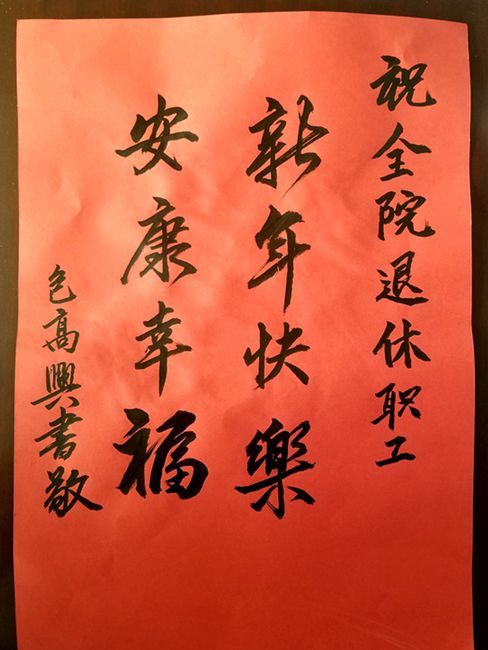 祝全院退休职工
新年快樂
安康幸福
包高興書敬